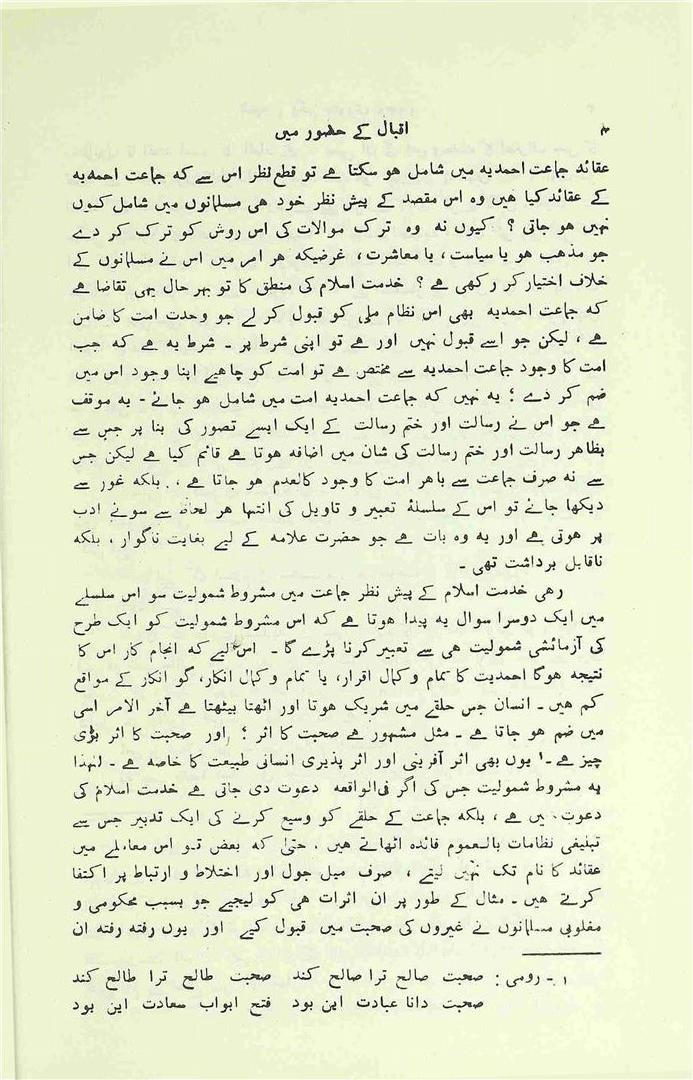 ۴
اقبال کے حضور میں
عقائد جماعت احمدیہ میں شامل ہو سکتا ہے تو قطع نظر اس سے کہ جماعت احمدیہ
کے عقائد کیا ہیں وہ اس مقصد کے پیش نظر خود ہی مسلمانوں میں شامل کیوں
نہیں ہو جاتی ؟ کیوں نہ وہ ترک موالات کی اس روش کو ترک کر دے
جو مذہب ہو یا سیاست ، یا معاشرت ، غرضیکہ ہر امر میں اس نے مسلمانوں کے
خلاف اختیار کر رکھی ہے ؟ خدمت اسلام کی منطق کا تو بہر حال یہی تقاضا ہے
کہ جماعت احمدیہ بھی اس نظام ملی کو قبول کر لے جو وحدت امت کا ضامن
ہے ، لیکن جو اسے قبول نہیں اور ہے تو اپنی شرط پر ۔ شرط یہ ہے کہ جب
امت کا وجود جماعت احمدیہ سے مختص ہے تو امت کو چاہیے اپنا وجود اس میں
ضم کر دے ؛ یہ نہیں کہ جماعت احمدیہ امت میں شامل ہو جائے ۔ یہ موقف
ہے جو اس نے رسالت اور ختم رسالت کے ایک ایسے تصور کی بنا پر جس سے
بظاہر رسالت اور ختم رسالت کی شان میں اضافہ ہوتا ہے قائم کیا ہے لیکن جس
سے نہ صرف جماعت سے باہر امت کا وجود کالعدم ہو جاتا ہے ، بلکہ غور سے
دیکھا جائے تو اس کے سلسلۂ تعبیر و تاویل کی انتہا ہر لحاظ سے سوئے ادب
پر ہوتی ہے اور یہ وہ بات ہے جو حضرت علامہ کے لیے بغایت ناگوار ، بلکہ
ناقابل برداشت تھی ۔
رھی خدمت اسلام کے پیش نظر جماعت میں مشروط شمولیت سو اس سلسلے
میں ایک دوسرا سوال یہ پیدا ہوتا ہے کہ اس مشروط شمولیت کو ایک طرح
کی آزمائشی شمولیت ہی سے تعبیر کرنا پڑے گا ۔ اس لیے کہ انجام کار اس کا
نتیجہ ہوگا احمدیت کا تمام و کمال اقرار، یا تمام و کمال انکار، گو انکار کے مواقع
کم ہیں ۔ انسان جس حلقے میں شریک ہوتا اور اٹھتا بیٹھتا ہے آخر الامر اسی
میں ضم ہو جاتا ہے ۔ مثل مشہور ہے صحبت کا اثر ؛ اور صحبت کا اثر بڑی
چیز ہے ۔۱ یوں بھی اثر آفرینی اور اثر پذیری انسانی طبیعت کا خاصہ ہے ۔ لہٰذا
یہ مشروط شمولیت جس کی اگر فی‌الواقعہ دعوت دی جاتی ہے خدمت اسلام کی
دعوت نہیں ہے ، بلکہ جماعت کے حلقے کو وسیع کرنے کی ایک تدبیر جس سے
تبلیغی نظامات بالعموم فائدہ اٹھاتے ہیں ، حتیٰ کہ بعض تو اس معاملے میں
عقائد کا نام تک نہیں لیتے ، صرف میل جول اور اختلاط و ارتباط پر اکتفا
کرتے ہیں ۔ مثال کے طور پر ان اثرات ہی کو لیجیے جو بسبب محکومی و
مغلوبی مسلمانوں نے غیروں کی صحبت میں قبول کیے اور یوں رفتہ رفتہ ان
۱ ۔ رومی : صحبت صالح ترا صالح کند صحبت طالح ترا طالح کند
صحبت دانا عبادت این بود فتح ابواب سعادت این بود